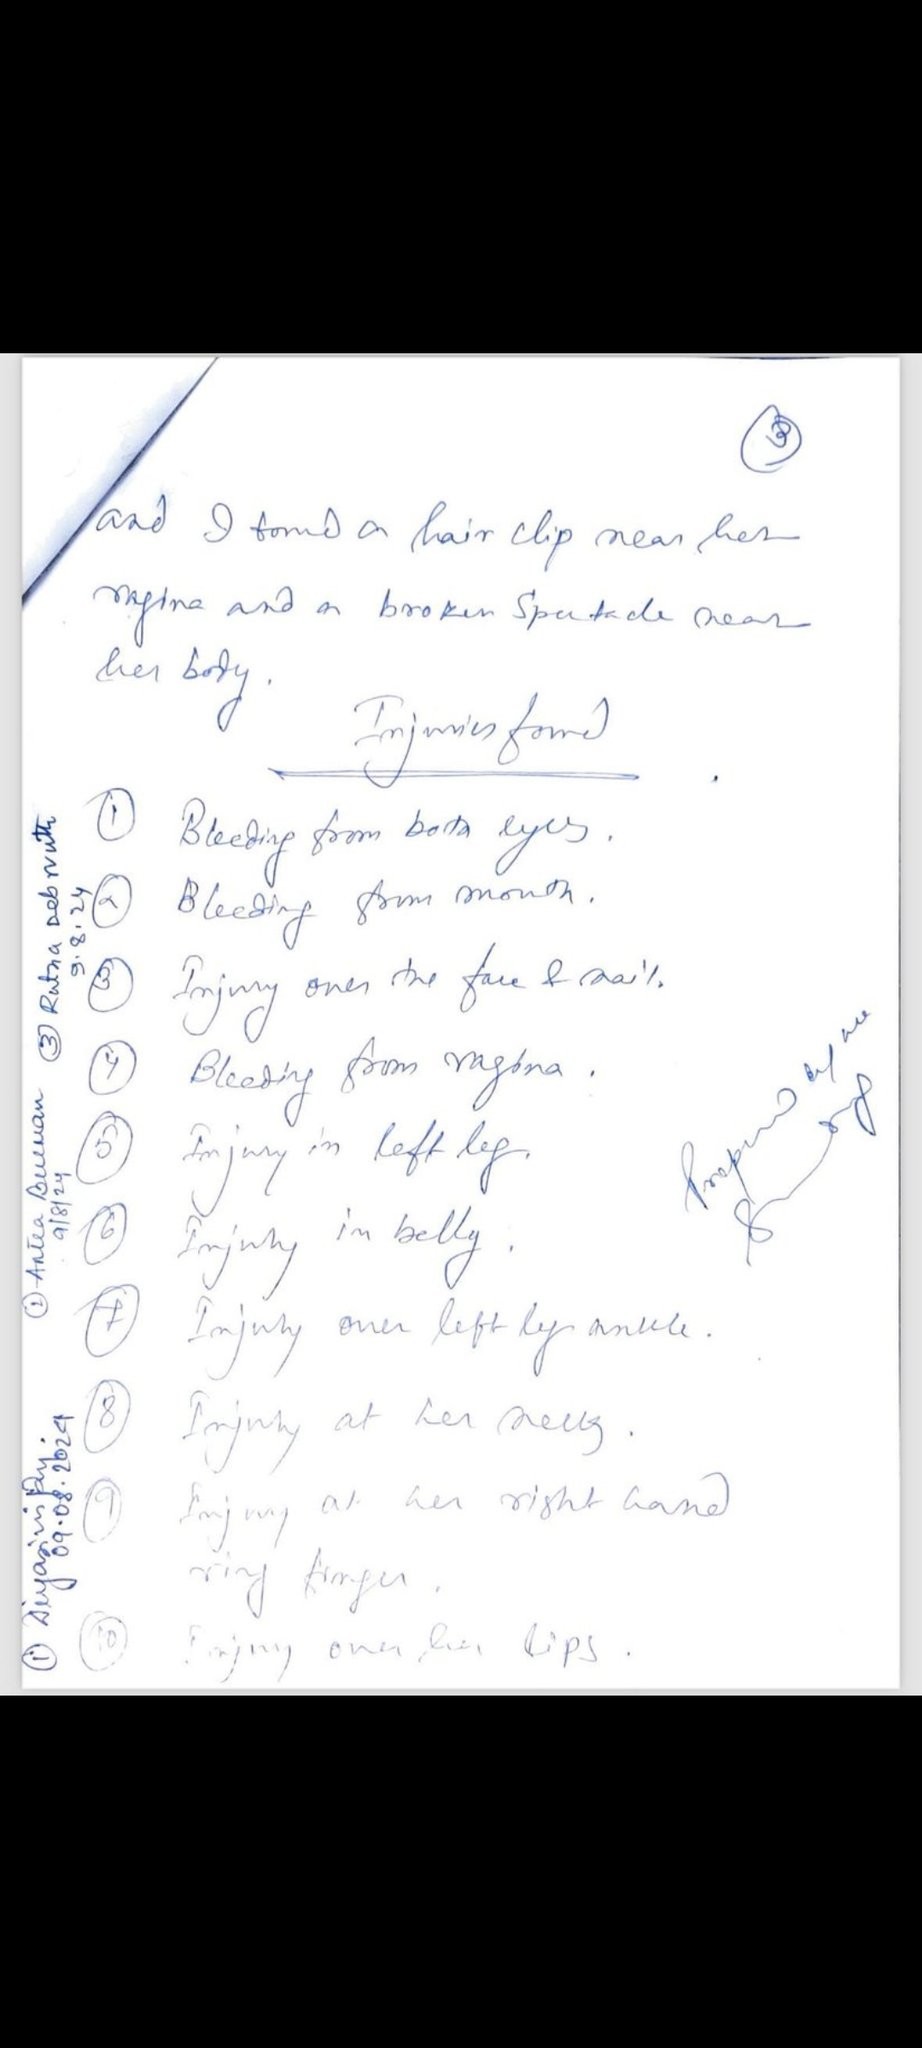 3
and I found a hair clip near her
vagina and a broken Spectacle near
her body.
Injuries found
1 Bleeding from both eyes.
2 Bleeding from mouth.
3 Injury over the face & nail.
4 Bleeding from vagina.
5 Injury in left leg.
6 Injury in belly.
7 Injury over left leg ankle.
8 Injury at her neck.
9 Injury at her right hand
ring finger.
10 Injury over her lips.
Prepared by me
3
9.8.24
2
9/8/24
1
09.08.2024